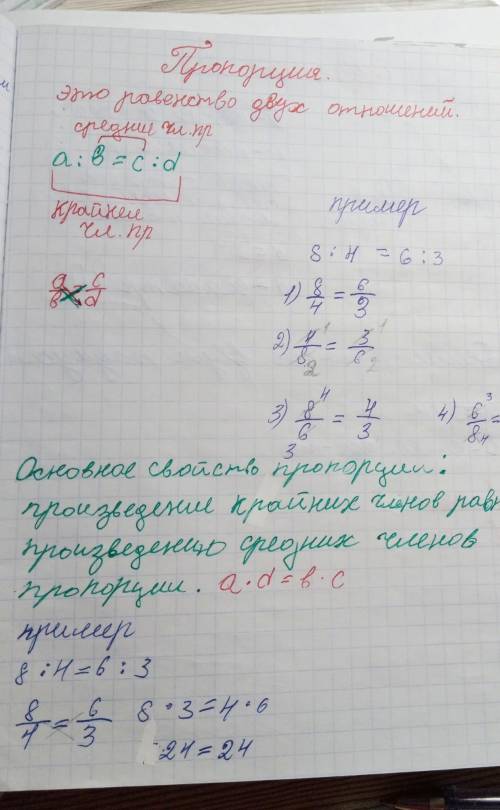 Пропорция.
это равенство двух отношений.
средние чл. пр
a : b = c : d
крайнем
чл. пр
a/b = c/d
пример
8 : 4 = 6 : 3
1) 8/4 = 6/3
2) 4/8 = 3/6 1 2 1 2
3) 8/6 = 4/3 4 3
4) 6/8 = 3 4
Основное свойство пропорции:
произведение крайних членов равн
произведению средних членов
пропорции. a · d = b · c
пример
8 : 4 = 6 : 3
8/4 = 6/3 8 · 3 = 4 · 6
24 = 24